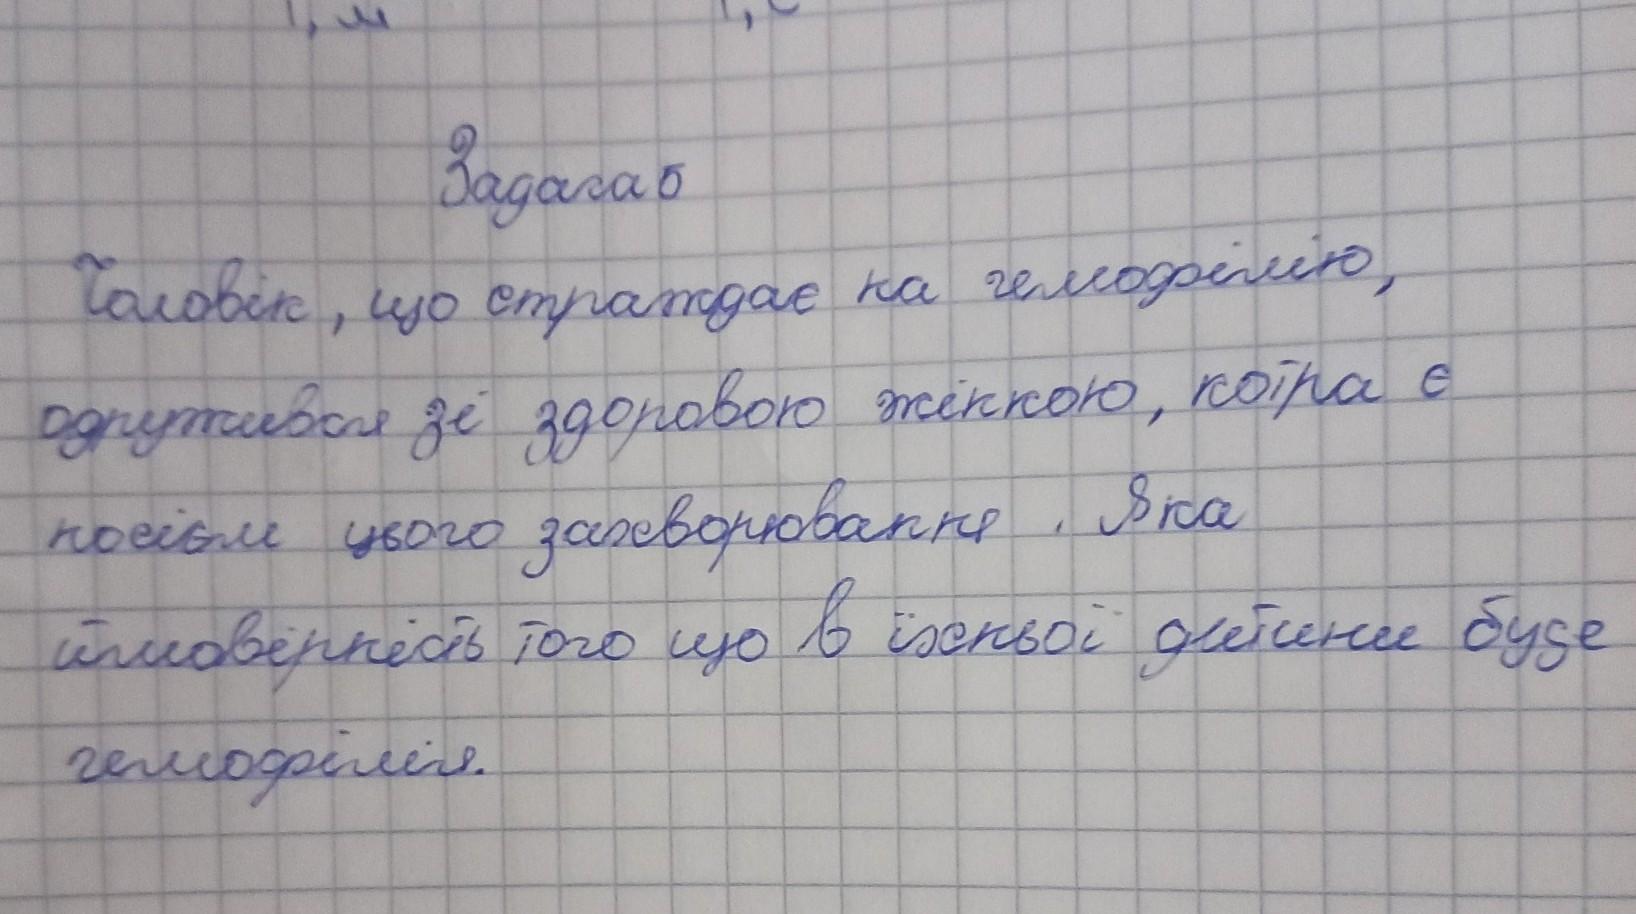 Задача 5
Чоловік, що страждає на гемофілію,
одружився зі здоровою жінкою, котра є
носієм цього захворювання. Яка
ймовірність того що в їхньої дитини буде
гемофілія.